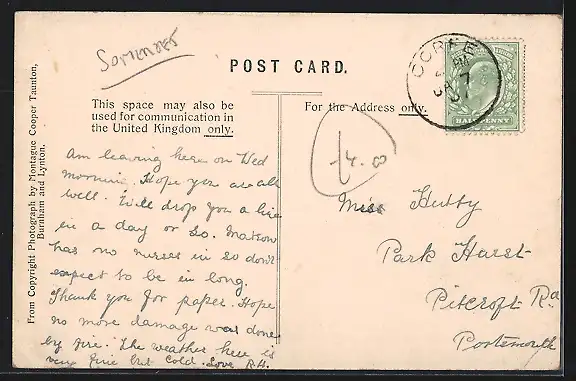 Somerset
POST CARD.
This space may also be
used for communication in
the United Kingdom only.
For the Address only.
From Copyright Photograph by Montague Cooper Taunton,
Burnham and Lynton.
CORFE
PM
JA 7
07
HALFPENNY
Am leaving here on Wed
morning. Hope you are all
well. Will drop you a line
in a day or so. Matron
has no nurses in so don't
expect to be in long.
Thank you for paper. Hope
no more damage was done
by fire. The weather here is
very fine but cold. Love R.H.
14.00
Miss Hutty
Park Hurst
Pitcroft Rd
Portsmouth